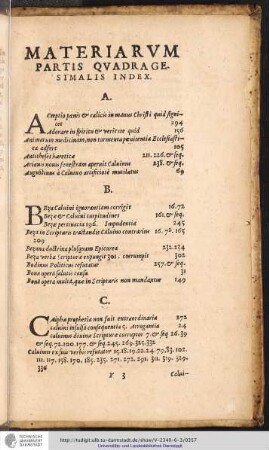 MATERIARVM
PARTIS QVADRAGE-
SIMALIS INDEX.
A.
Acceptio panis & calicis in manus Christi quid signifi-
cet 294
Adorare in spiritu & veritate quid 156
Animarum medicinam, non tormenta pœnitentia Ecclesiasti-
ca adfert 105
Antithesis hæretica 211. 226. & seq.
Arianis nouis fenestram aperuit Caluinus 238. & seq.
Augustinus à Caluino artificiosè mutilatus 69
B.
Beza Caluini ignorantiam corrigit 16. 72
Bezæ & Caluini turpitudines 161. & seq.
Bezæ pertinacia 196. Impudentia 245
Beza in Scripturis tractandis Caluino contrarius 16. 78. 165
209
Bezana doctrina plusquam Epicurea 232. 234
Beza verba Scripturæ expungit 301. corrumpit 302
Bodinus Politicus refutatur 257. & seq.
Bona opera salutis causa 31
Bona opera multa, quæ in Scripturis non mandantur 149
C.
Caiphæ prophetia non fuit extraordinaria 272
Caluini insulsa consequentia 5. Arrogantia 24
Caluinus diuinæ Scripturæ corruptor 7. & seq. 26. 39
& seq. 72. 100. 177. & seq. 245. 269. 325. 332
Caluinus ex suis verbis refutatur 15. 18. 19. 22. 24. 79. 83. 102.
111. 117. 158. 170. 185. 235. 271. 272. 291. 311. 319. 329.
336
Y 3 Calui-
http://tudigit.ulb.tu-darmstadt.de/show/V-2340-6-3/0357